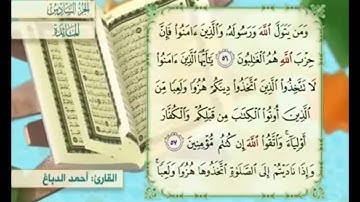 الجزء السادس
المائدة
وَمَن يَتَوَلَّ اللَّهَ وَرَسُولَهُۥ وَالَّذِينَ ءَامَنُوا۟ فَإِنَّ
حِزْبَ اللَّهِ هُمُ الْغَٰلِبُونَ ٥٦ يَٰٓأَيُّهَا الَّذِينَ ءَامَنُوا۟
لَا تَتَّخِذُوا۟ الَّذِينَ اتَّخَذُوا۟ دِينَكُمْ هُزُوًا وَلَعِبًا مِّنَ
الَّذِينَ أُوتُوا۟ الْكِتَٰبَ مِن قَبْلِكُمْ وَالْكُفَّارَ
أَوْلِيَآءَ ۚ وَاتَّقُوا۟ اللَّهَ إِن كُنتُم مُّؤْمِنِينَ ٥٧
وَإِذَا نَادَيْتُمْ إِلَى الصَّلَوٰةِ اتَّخَذُوهَا هُزُوًا وَلَعِبًا ۚ
القارئ: أحمد الدباغ